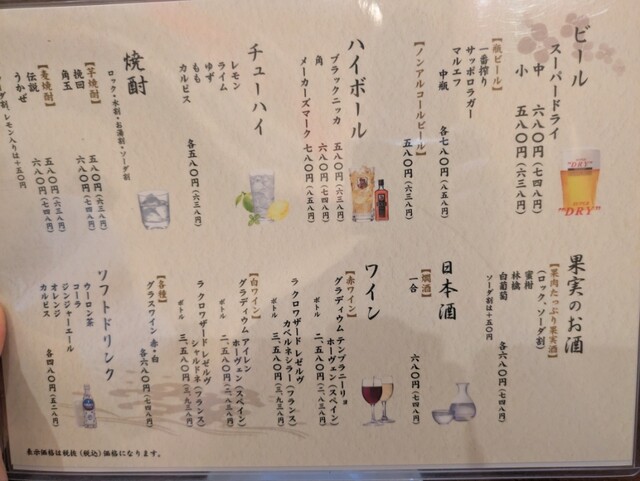 ビール
スーパードライ
中 六八〇円(七四八円)
小 五八〇円(六三八円)
"DRY"
SUPER
"DRY"
【瓶ビール】
一番搾り
サッポロラガー
マルエフ
中瓶 各七八〇円(八五八円)
【ノンアルコールビール】
五八〇円(六三八円)
ハイボール
ブラックニッカ 五八〇円(六三八円)
角 六八〇円(七四八円)
メーカーズマーク 七八〇円(八五八円)
チューハイ
レモン
ライム
ゆず
もも
カルピス
各五八〇円(六三八円)
焼酎
ロック・水割・お湯割・ソーダ割
【芋焼酎】
挽回 五八〇円(六三八円)
角玉 六八〇円(七四八円)
【麦焼酎】
伝説 五八〇円(六三八円)
うかぜ 六八〇円(七四八円)
ソーダ割、レモン入りは+五〇円
果実のお酒
【果肉たっぷり果実酒】
(ロック、ソーダ割)
蜜柑
林檎
白葡萄
各六八〇円(七四八円)
ソーダ割は+五〇円
日本酒
【燗酒】
一合 六八〇円(七四八円)
ワイン
【赤ワイン】
グラディウム テンプラニーリョ
ホーヴェン(スペイン)
ボトル 二、五八〇円(二、八三八円)
ラ クロワザード レゼルヴ
カベルネシラー(フランス)
ボトル 三、五八〇円(三、九三八円)
【白ワイン】
グラディウム アイレン
ホーヴェン(スペイン)
ボトル 二、五八〇円(二、八三八円)
ラ クロワザード レゼルヴ
シャルドネ(フランス)
ボトル 三、五八〇円(三、九三八円)
【各種】
グラスワイン 赤・白
各六八〇円(七四八円)
ソフトドリンク
ウーロン茶
コーラ
ジンジャーエール
オレンジ
カルピス
各四八〇円(五二八円)
表示価格は税抜(税込)価格になります。